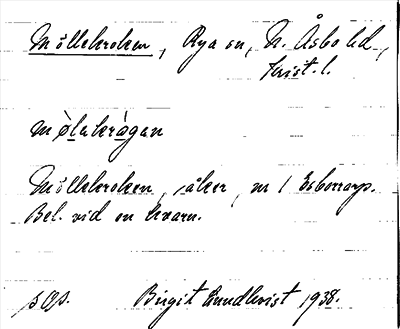 Möllekroken, Rya sn, N. Åsbo hd,
Krist. l.
mø̀lekrågan
Möllekroken, åker, nr 1 Esborrarp.
Bel. vid en kvarn.
Birgit Lundkvist 1938.